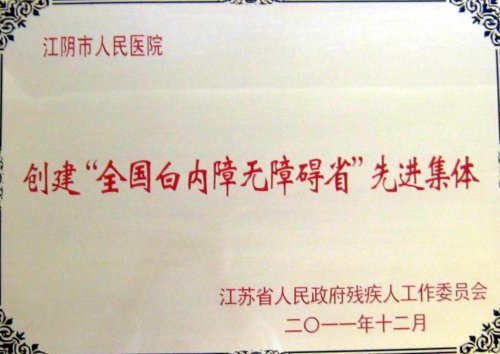 江阴市人民医院
创建“全国白内障无障碍省”先进集体
江苏省人民政府残疾人工作委员会
二〇一一年十二月